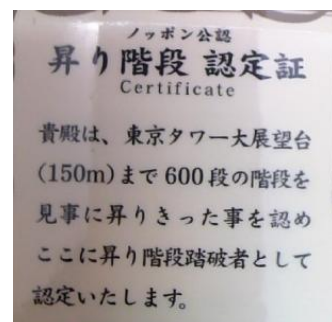 ノッポン公認
昇り階段 認定証
Certificate
貴殿は、東京タワー大展望台
(150m)まで600段の階段を
見事に昇りきった事を認め
ここに昇り階段踏破者として
認定いたします。